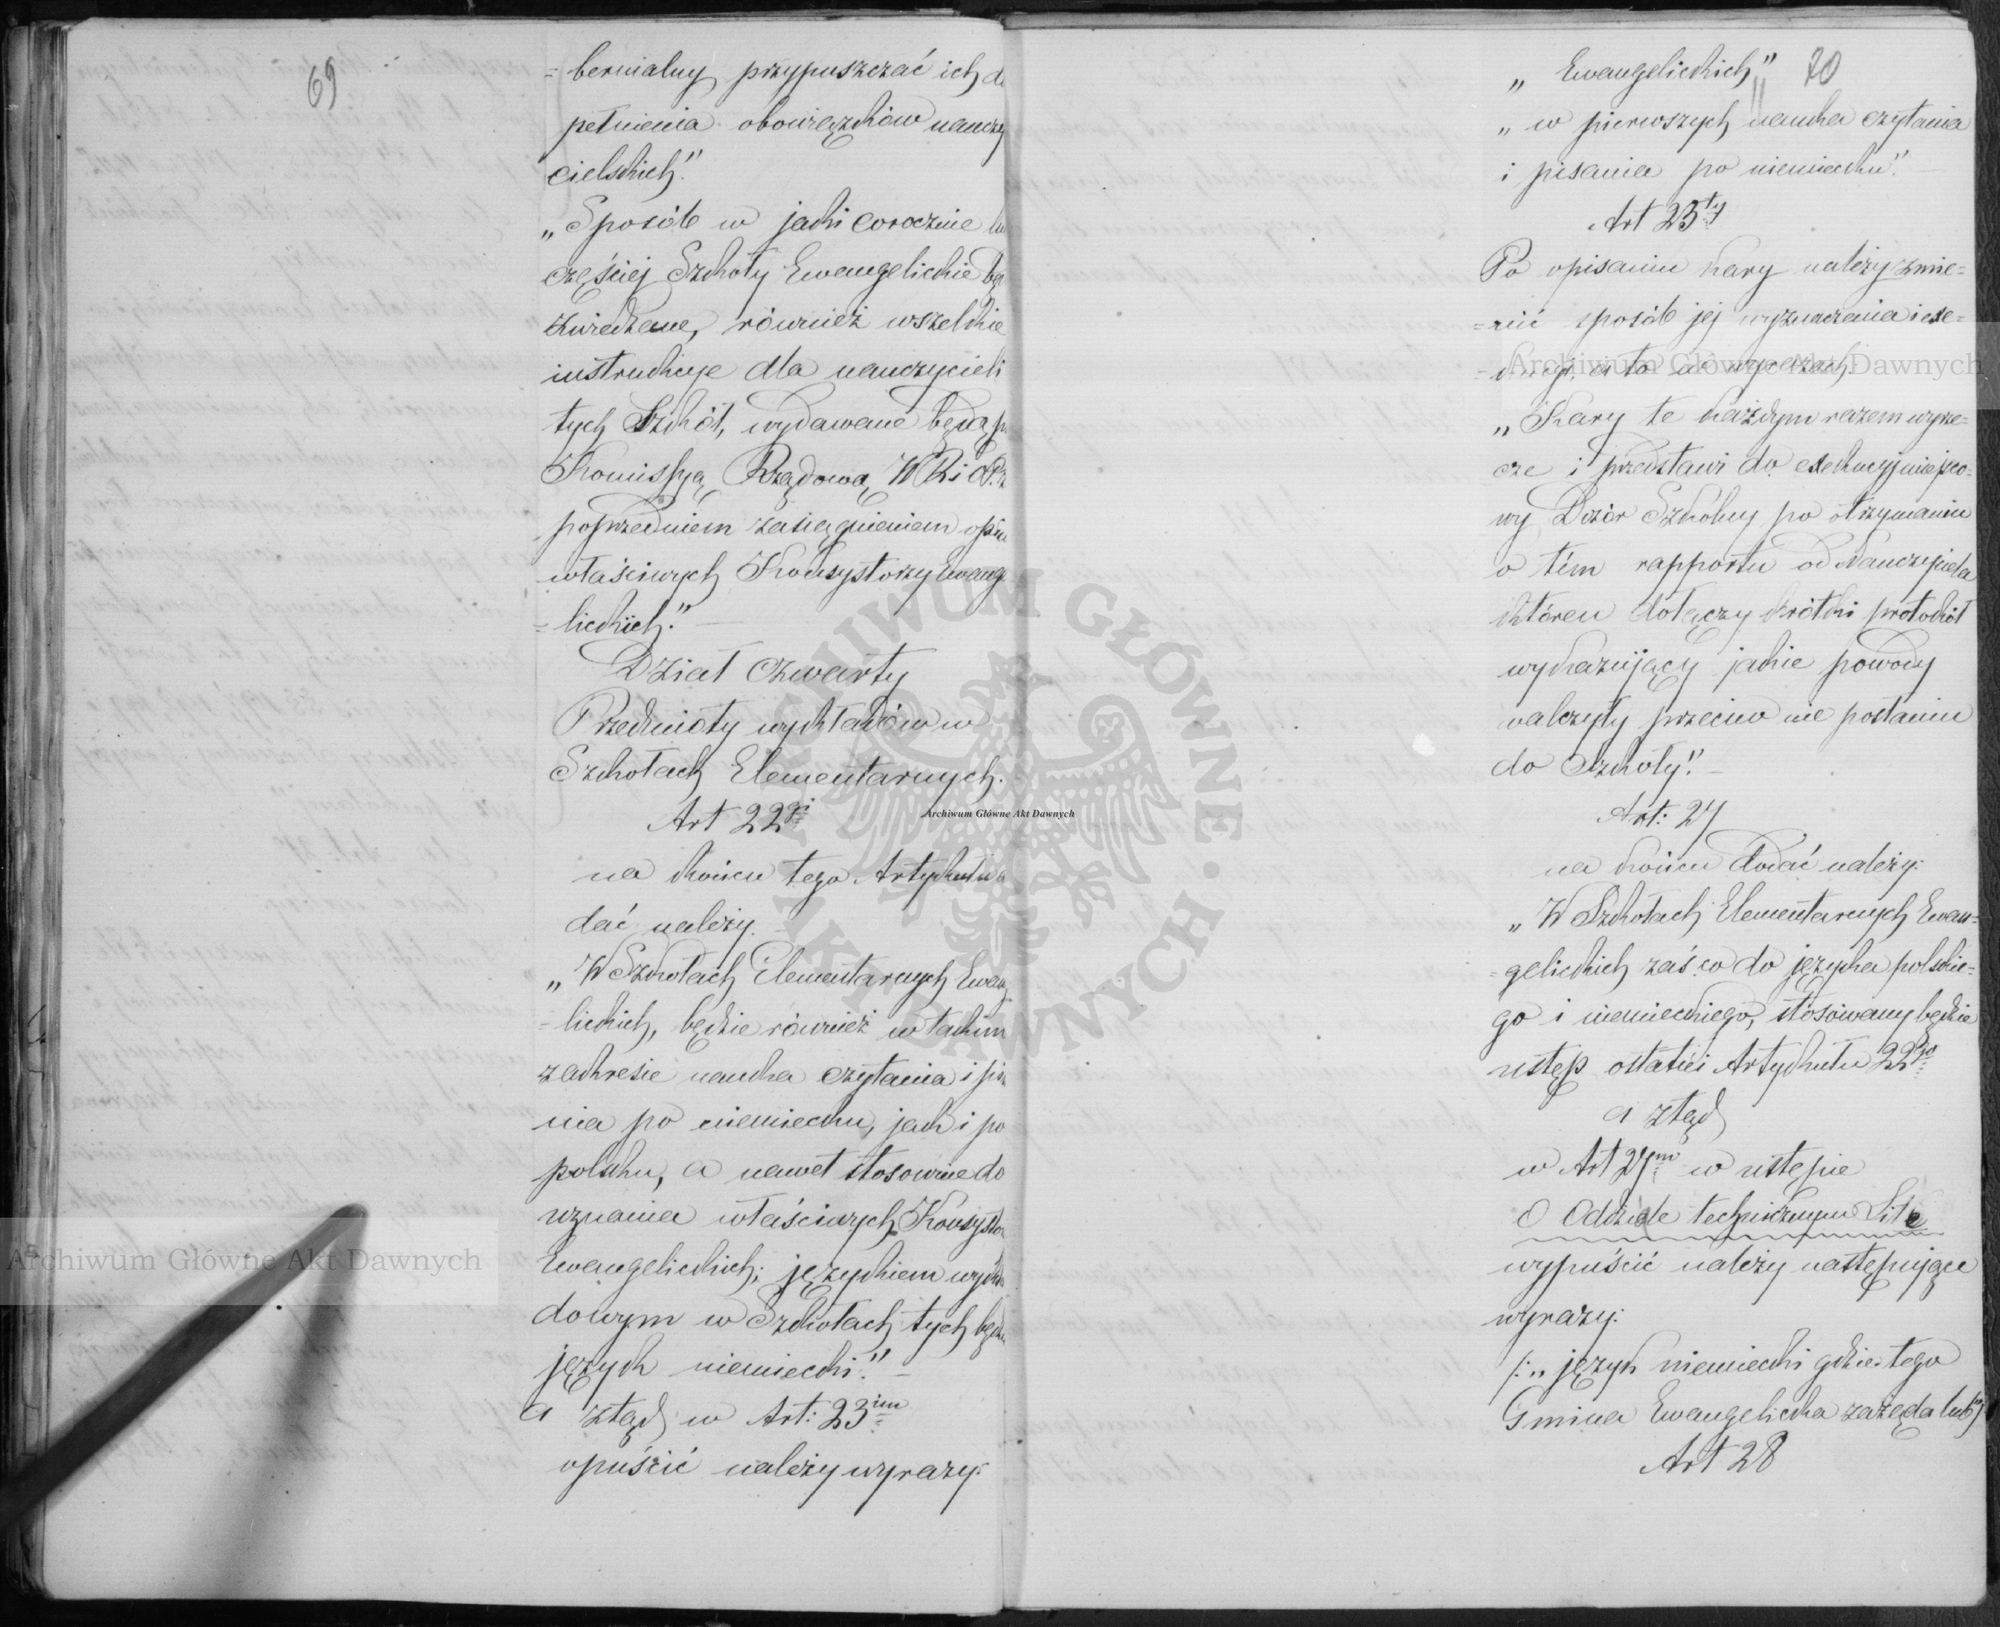 69
=bernialny przypuszczać ich do
pełnienia obowiązków nauczy
cielskich".
„Sposób w jaki corocznie lu
częściej Szkoły Ewangelickie bę
zwiedzane, również wszelkie
instrukcye dla nauczycieli
tych Szkół, wydawane będą p
Kommissyą Rządową W R i O P. z
poprzedniem zasiągnieniem opin
właściwych Konsystorzy Ewang
=lickich." —
Dział Czwarty
Przedmioty wykładów w
Szkołach Elementarnych.
Art 22gi
na końcu tego Artykułu
dać należy. —
„W Szkołach Elementarnych Ewang
=lickich, będzie również w takim
zakresie nauka czytania i pisa
nia po niemiecku, jak i po
polsku, a nawet stosownie do
uznania właściwych Konsysto
Ewangelickich; językiem wykła
dowym w Szkołach tych będzie
język niemiecki." —
a ztąd w Art: 23im
opuścić należy wyrazy:
„ Ewangelickich" 70
„ w pierwszych nauka czytania
i pisania po niemiecku." —
Art 25ty
Po opisaniu kary należy zmie=
=nić sposób jej wyznaczenia i exe=
=kucyi, a to w wyrazach:
„Kary te każdym razem wyrze=
cze i przedstawi do exekucyi miejsco=
wy Dozór Szkólny po otrzymaniu
o tém rapportu od Nauczyciela
któren dołączy krótki protokół
wykazujący jakie powody
walczyły przeciw nie posłaniu
do Szkoły". —
Art: 27
na końcu dodać należy:
„W Szkołach Elementarnych Ewan=
=gelickich zaś co do języka polskie=
go i niemieckiego, stosowany będzie
ustęp ostatni Artykułu 22go
a ztąd
w Art 27m w ustępie
O Oddziale technicznym Lit:
wypuścić należy następujące
wyrazy:
/:„język niemiecki gdzie tego
Gmina Ewangelicka zażąda lub:/
Art 28
Archiwum Główne Akt Dawnych
Archiwum Główne Akt Dawnych
Archiwum Główne Akt Dawnych
ARCHIWUM GŁÓWNE · AKT DAWNYCH ·